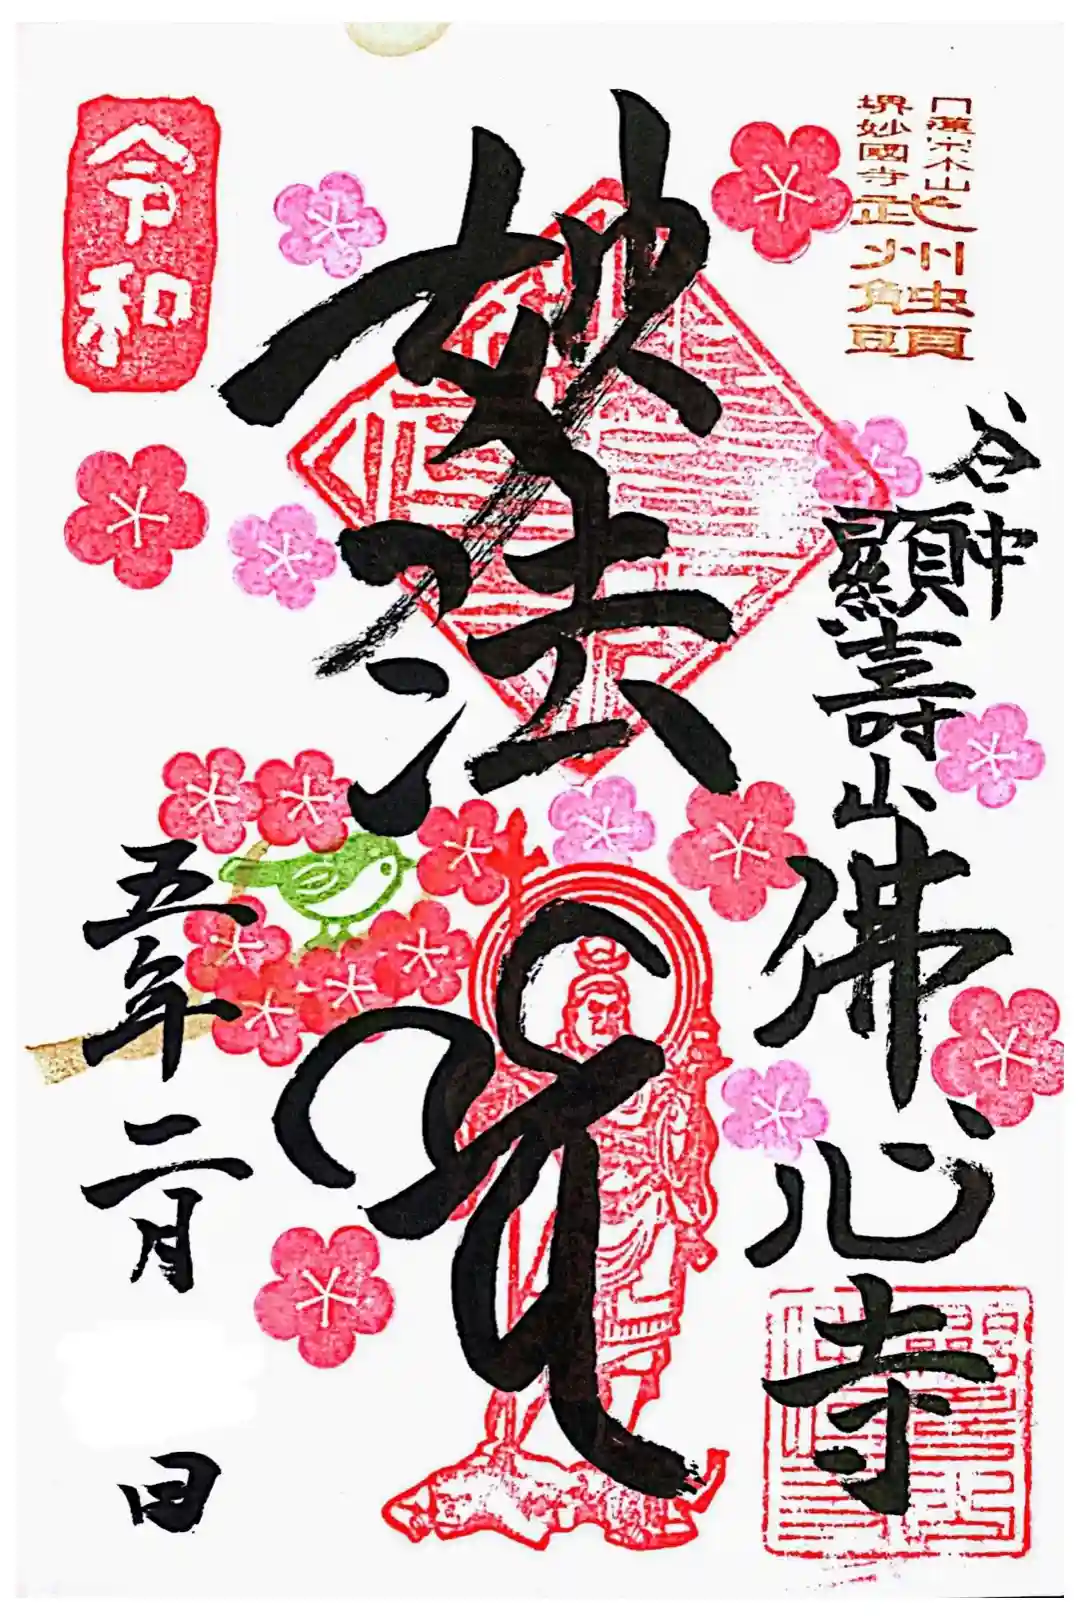 日蓮宗本山
堺妙國寺
武州触頭
谷中
顯壽山
佛心寺
妙法
令和
五年二月
日